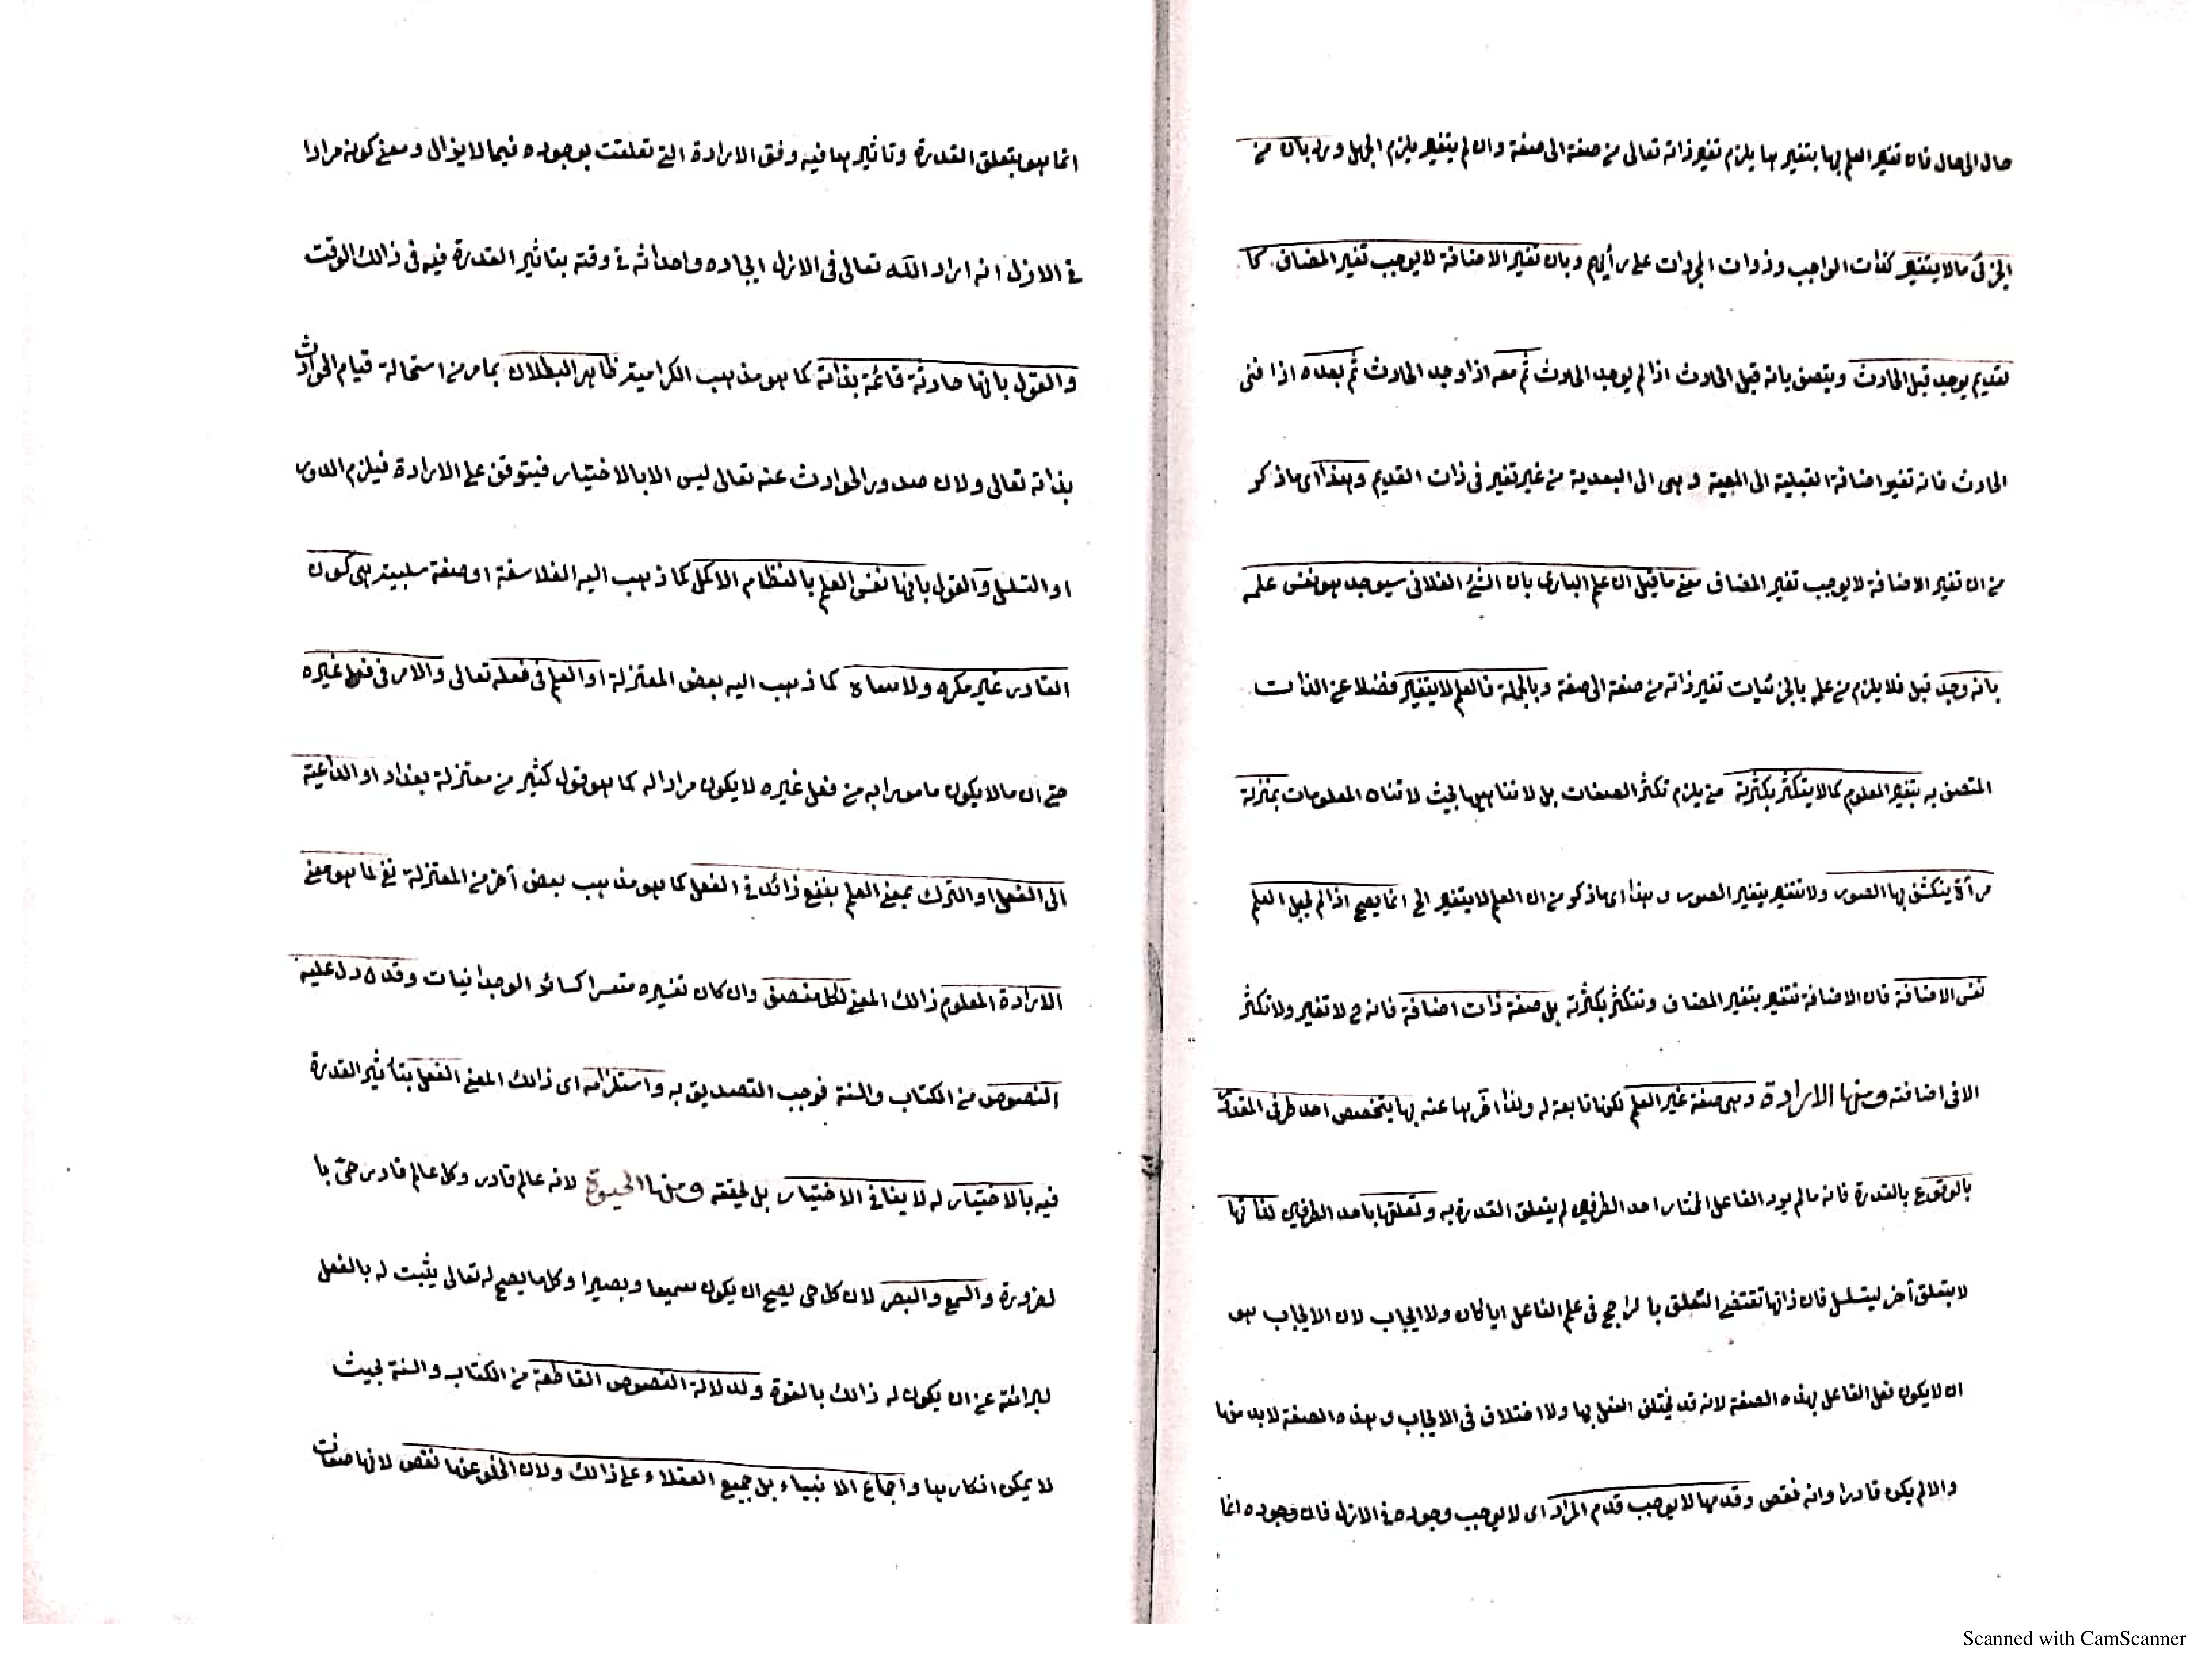 حال الى حال فان تغير العلم بها بتغيرها يلزم تغير ذاته تعالى من صفة الى صفة وان لم يتغير يلزم الجهل ورد بان من
الجزئى مالا يتغير كذات الواجب وذوات المجردات على رأيهم وبان تغير الاضافة لا يوجب تغير المضاف كا
لقديم يوجد قبل الحادث ويتصف بانه قبل الحادث اذا لم يوجد الحادث ثم معه اذا وجد الحادث ثم بعده اذا فنى
الحادث فانه تغير اضافة القبلية الى المعية وهى الى البعدية من غير تغير فى ذات القديم وهذا اى ما ذكر
من ان تغير الاضافة لا يوجب تغير المضاف معنى ما قيل ان علم البارى بان الشئ الفلانى سيوجد هو نفس علمه
بانه وجد قبل فلا يلزم من علمه بالجزئيات تغير ذاته من صفة الى صفة وبالجملة فالعلم لا يتغير فضلا عن الذات
المتصف به بتغير المعلوم كما لا يتكثر بكثرته حتى يلزم تكثر الصفات بل لا تناهيها بحيث لا تناه المعلومات بمنزلة
مرأة ينكشف بها الصور ولا تتغير بتغير الصور وهذا اى ما ذكر من ان العلم لا يتغير الخ انما يصح اذا لم يجعل العلم
نفس الاضافة فان الاضافة تتغير بتغير المضاف وتتكثر بكثرته بل صفة ذات اضافة فانه ح لا تغير ولا تكثر
الا فى اضافته ومنها الارادة وهى صفة غير العلم لكنها تابعة له ولذا اخرها عنه بها يتخصص احد طرفى المقدور
بالوقوع بالقدرة فانه مالم يرد الفاعل المختار احد الطرفين لم يتعلق القدرة به وتعلقها باحد الطرفين لذاتها
لا بتعلق أخر ليتسلسل فان ذاتها تقتضى التعلق با لراجح فى علم الفاعل ايا كان ولا ايجاب لان الايجاب هو
ان لا يكون فعل الفاعل بهذه الصفة لانه قد يختلف الفعل بها ولا اختلاف فى الايجاب وهذه الصفة لابد منها
والا لم يكن قادرا وانه نقص وقدمها لا يوجب قدم المراد اى لا يوجب وجوده فى الازل فان وجوده انما
انما هو بتعلق القدرة وتاثيرها فيه وفق الارادة التى تعلقت بوجوده فيما لا يزال ومعنى كونه مرادا
فى الازل انه اراد الله تعالى فى الازل ايجاده واحداثه فى وقته بتاثير القدرة فيه فى ذالك الوقت
والقول بانها حادثة قائمة بذاته كما هو مذهب الكرامية ظاهر البطلان بما مر من استحالة قيام الحوادث
بذاته تعالى ولان صدور الحوادث عنه تعالى ليس الا بالاختيار فيتوقف على الارادة فيلزم الدور
او التسلسل والقول بانها نفس العلم بالنظام الاكمل كما ذهب اليه الفلاسفة او صفة سلبية هى كون
القادر غير مكره ولا ساه كما ذهب اليه بعض المعتزلة او العلم فى فعله تعالى والامر فى فعل غيره
حتى ان مالا يكون مامورا به من فعل غيره لا يكون مرادا له كما هو قول كثير من معتزلة بغداد او الداعية
الى الفعل او الترك بمعنى العلم بنفع زائد فى الفعل كما هو مذهب بعض أخر من المعتزلة نفى لما هو معنى
الارادة المعلوم ذالك المعنى لكل منصف وان كان تفسيره متعسرا كسائر الوجدانيات وقد دل عليه
النصوص من الكتاب والسنة فوجب التصديق به واستلزامه اى ذالك المعنى الفعل بتأثير القدرة
فيه بالاختيار له لا ينافى الاختيار بل تحققه ومنها الحيوة لانه عالم قادر وكل عالم قادر حى با
لضرورة والسمع والبصر لان كل حى يصح ان يكون سميعا وبصيرا وكل ما يصح له تعالى يثبت له بالفعل
لبرائته عن ان يكون له ذالك بالقوة ولدلالة النصوص القاطعة من الكتاب والسنة بحيث
لا يمكن انكارها واجماع الانبياء بل جميع العقلاء على ذالك ولان الخلو عنها نقص لانها صفات
Scanned with CamScanner